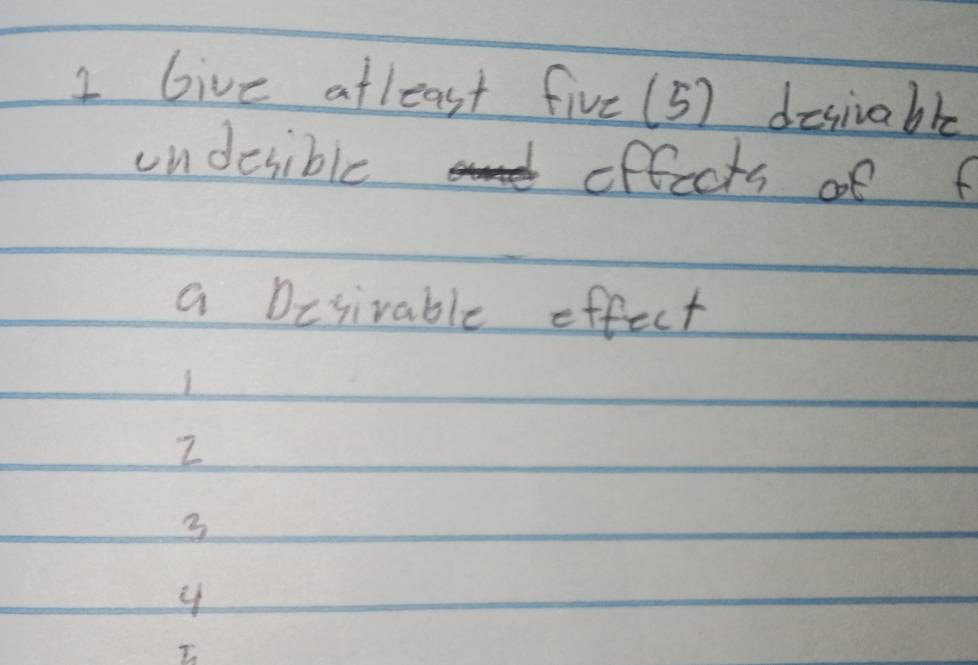 1 Give atleast five (5) desirable
undesible effects of f
a Desirable effect
1
2
3
4
5